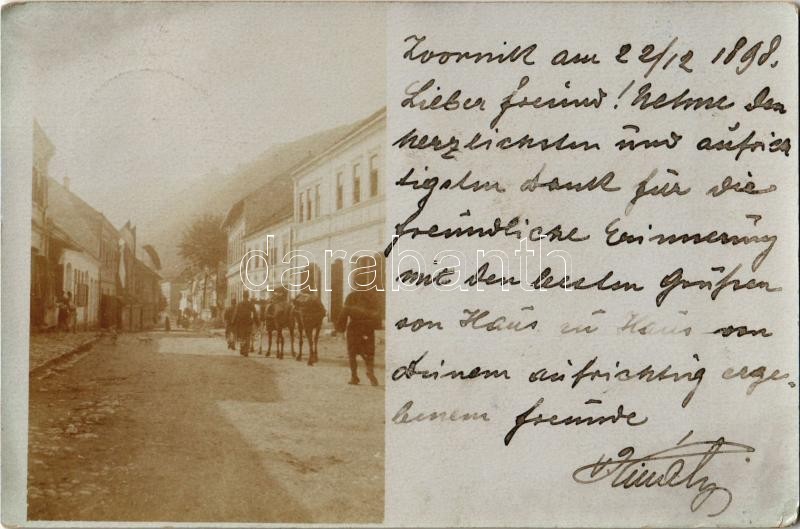 Zvornik am 22/12 1898.
Lieber Freund! Nehme den
herzlichsten und aufrich
tigsten Dank für die
freundliche Erinnerung
mit den besten Grüßen
von Haus zu Haus von
Deinem aufrichtig erge-
benem Freunde
darabanth.com